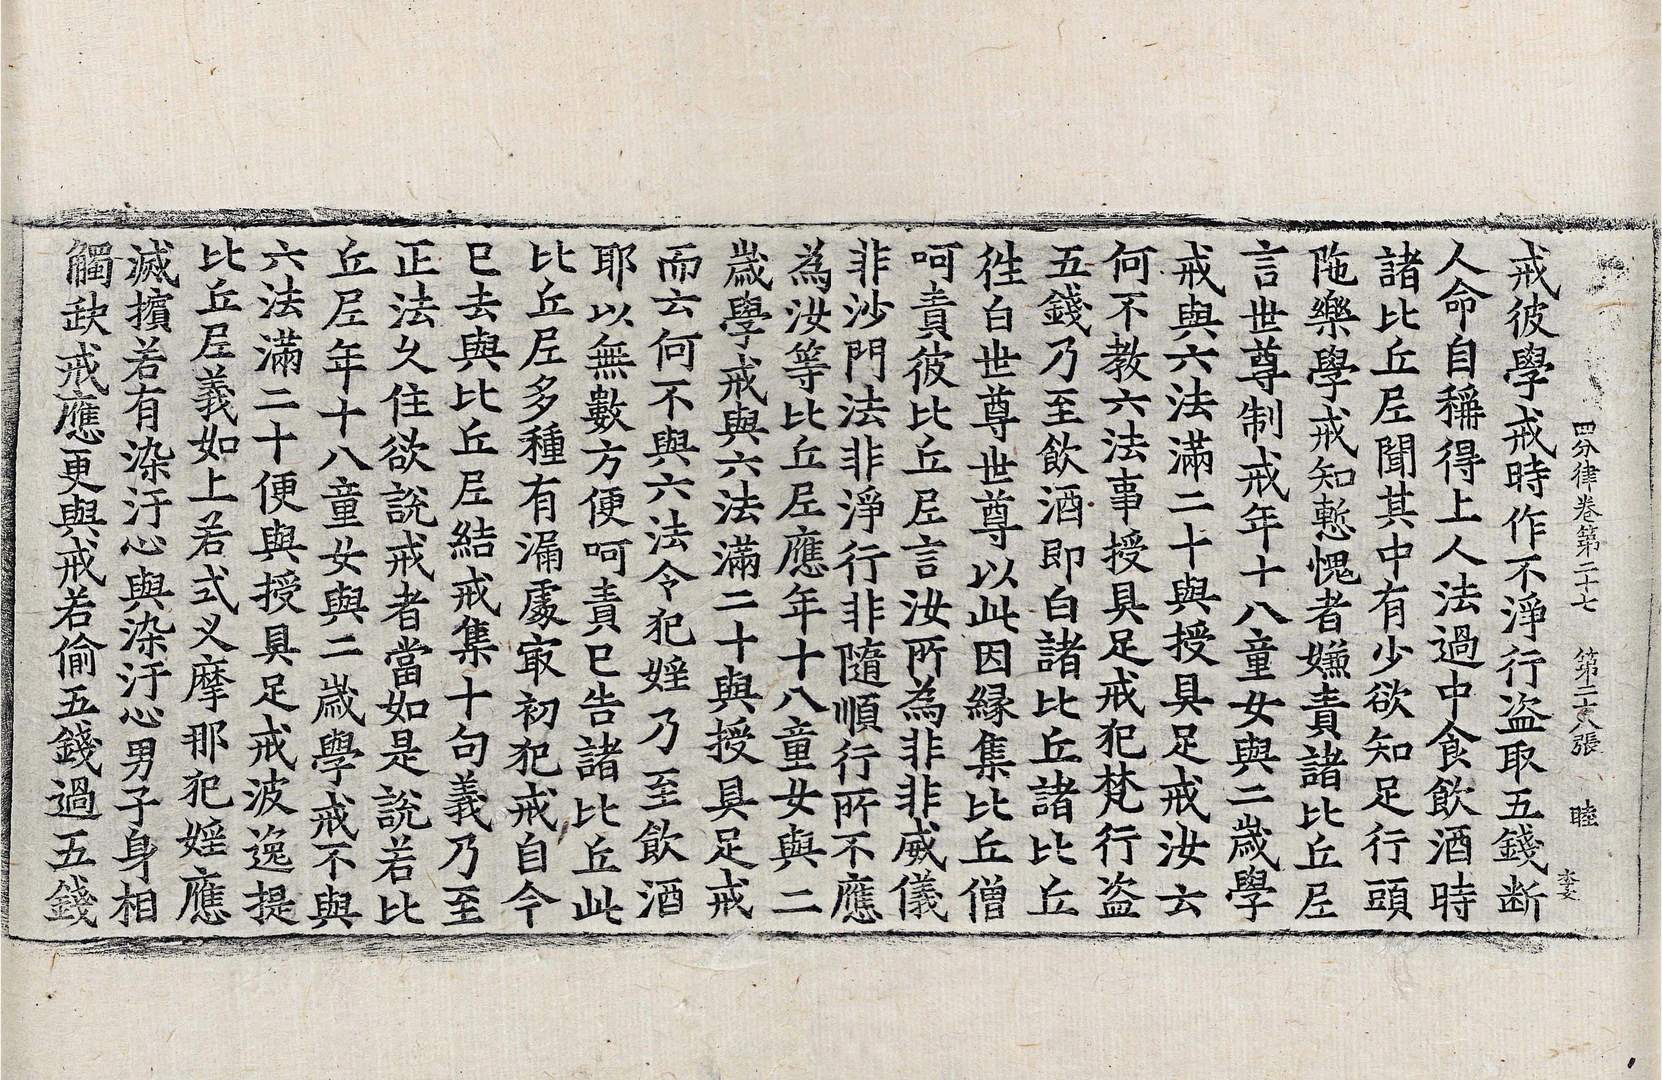 四分律卷第二十七　第二十八張　睦　李文
戒彼學戒時作不淨行盜取五錢断
人命自稱得上人法過中食飲酒時
諸比丘尼聞其中有少欲知足行頭
陁樂學戒知慙愧者嫌責諸比丘尼
言世尊制戒年十八童女與二歲學
戒與六法滿二十與授具足戒汝云
何不教六法事授具足戒犯梵行盜
五錢乃至飲酒即白諸比丘諸比丘
徃白世尊世尊以此因緣集比丘僧
呵責彼比丘尼言汝所為非非威儀
非沙門法非淨行非隨順行所不應
為汝等比丘尼應年十八童女與二
歲學戒與六法滿二十與授具足戒
而云何不與六法令犯婬乃至飲酒
耶以無數方便呵責已告諸比丘此
比丘尼多種有漏處㝡初犯戒自今
已去與比丘尼結戒集十句義乃至
正法久住欲說戒者當如是說若比
丘尼年十八童女與二歲學戒不與
六法滿二十便與授具足戒波逸提
比丘尼義如上若式叉摩那犯婬應
滅擯若有染汙心與染汙心男子身相
觸缺戒應更與戒若偷五錢過五錢